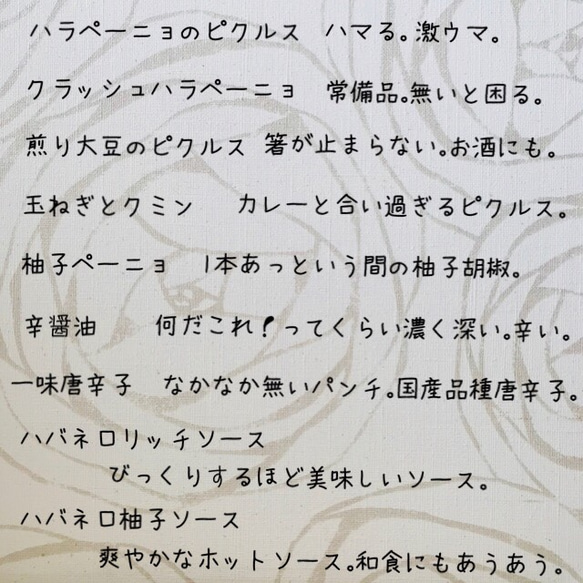 ハラペーニョのピクルス ハマる。激ウマ。
クラッシュハラペーニョ 常備品。無いと困る。
煎り大豆のピクルス 箸が止まらない。お酒にも。
玉ねぎとクミン カレーと合い過ぎるピクルス。
柚子ペーニョ 1本あっという間の柚子胡椒。
辛醤油 何だこれ!ってくらい濃く深い。辛い。
一味唐辛子 なかなか無いパンチ。国産品種唐辛子。
ハバネロリッチソース
びっくりするほど美味しいソース。
ハバネロ柚子ソース
爽やかなホットソース。和食にもあうあう。